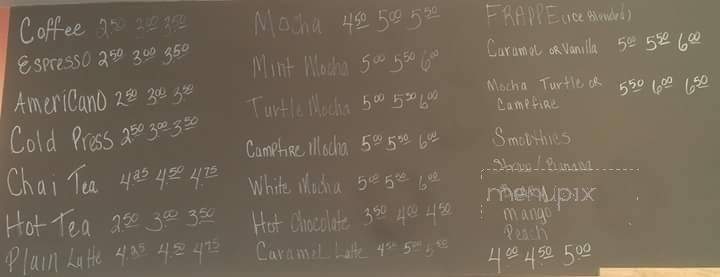 Coffee 2.50 3.00 3.50
Espresso 2.50 3.00 3.50
Americano 2.50 3.00 3.50
Cold Press 2.50 3.00 3.50
Chai Tea 4.25 4.50 4.75
Hot Tea 2.50 3.00 3.50
Plain Latte 4.25 4.50 4.75
Mocha 4.50 5.00 5.50
Mint Mocha 5.00 5.50 6.00
Turtle Mocha 5.00 5.50 6.00
Campfire Mocha 5.00 5.50 6.00
White Mocha 5.00 5.50 6.00
Hot Chocolate 3.50 4.00 4.50
Caramel Latte 4.50 5.00 5.50
FRAPPE (ice Blended)
Caramel or Vanilla 5.00 5.50 6.00
Mocha Turtle or 5.50 6.00 6.50
Campfire
Smoothies
Straw/Banana
menupix
Mango
Peach
4.00 4.50 5.00